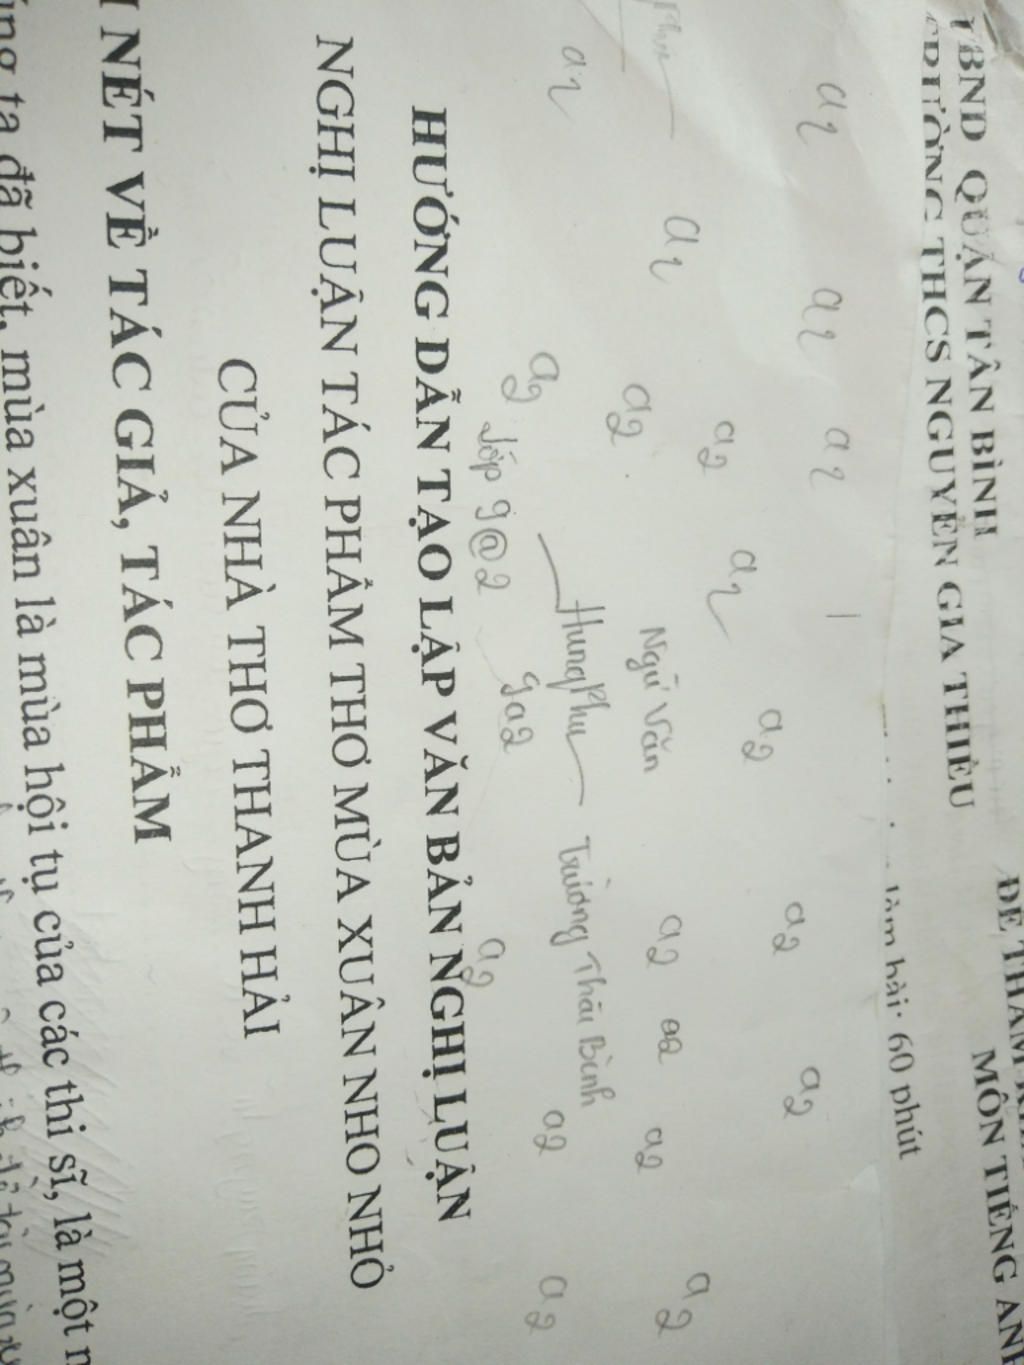 UBND QUẬN TÂN BÌNH
TRƯỜNG THCS NGUYỄN GIA THIỀU
ĐỀ THAM
MÔN TIẾNG ANH
làm bài: 60 phút
a2 a2 a2
a2 a2 a2 a2 a2
a2 a2 Ngữ Văn a2 a2 a2 a2
a2 Hưng Phú Trương Thái Bình
a2 9a2 a2 a2
Lớp 9@2 a2
HƯỚNG DẪN TẠO LẬP VĂN BẢN NGHỊ LUẬN
NGHỊ LUẬN TÁC PHẨM THƠ MÙA XUÂN NHO NHỎ
CỦA NHÀ THƠ THANH HẢI
NÉT VỀ TÁC GIẢ, TÁC PHẨM
ta đã biết, mùa xuân là mùa hội tụ của các thi sĩ, là một